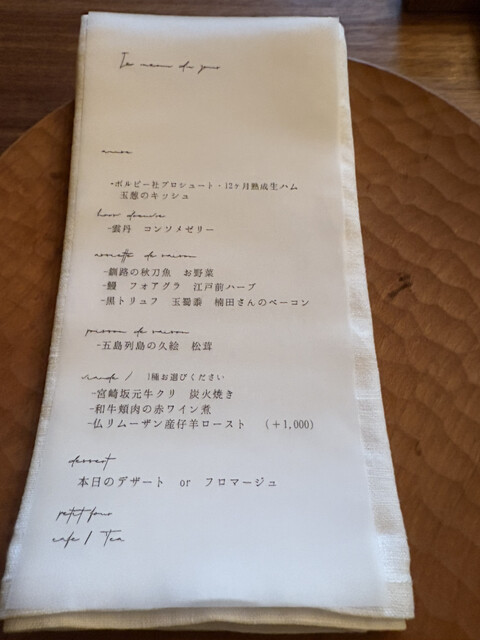 Le menu du jour
amuse
-ボルピー社プロシュート・12ヶ月熟成生ハム
玉葱のキッシュ
hors d'oeuvre
-雲丹 コンソメゼリー
assiette de saison
-釧路の秋刀魚 お野菜
-鰻 フォアグラ 江戸前ハーブ
-黒トリュフ 玉蜀黍 楠田さんのベーコン
poisson de saison
-五島列島の久絵 松茸
viande / 1種お選びください
-宮崎坂元牛クリ 炭火焼き
-和牛頬肉の赤ワイン煮
-仏リムーザン産仔羊ロースト (+1,000)
dessert
本日のデザート or フロマージュ
petit four
cafe / Tea